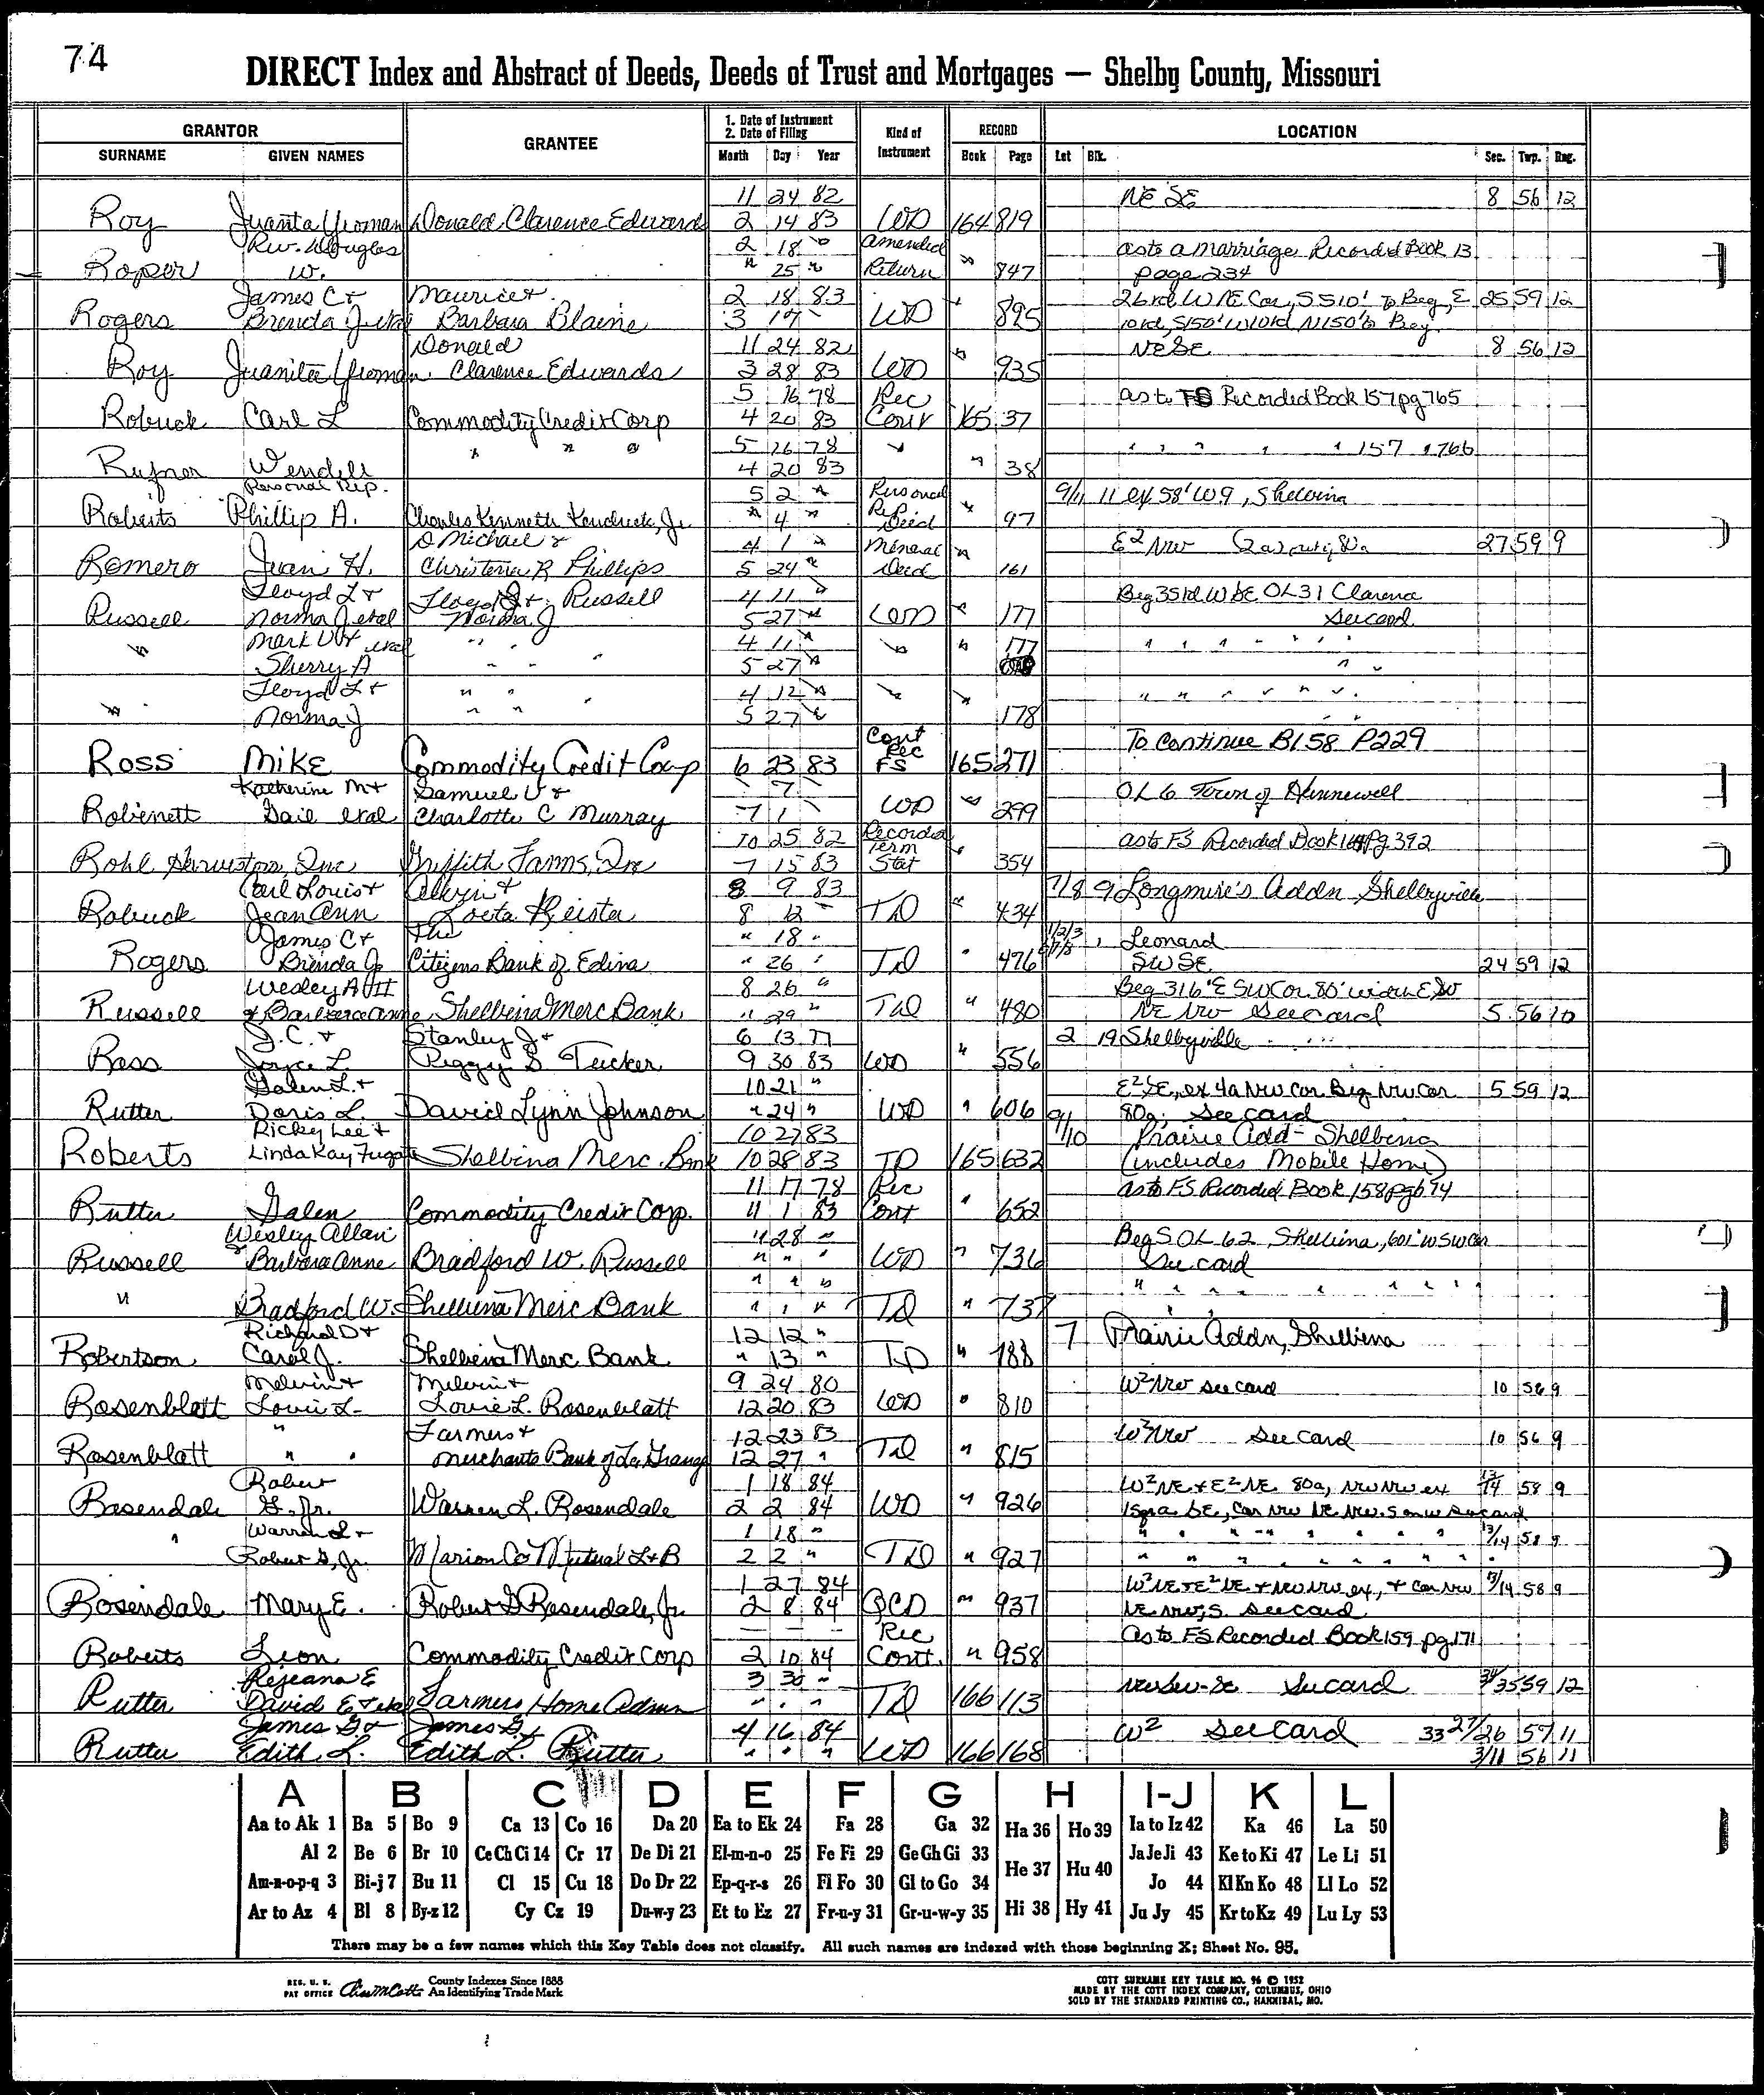 74
DIRECT Index and Abstract of Deeds, Deeds of Trust and Mortgages — Shelby County, Missouri
GRANTOR GRANTEE 1. Date of Instrument 2. Date of Filing Kind of Instrument RECORD LOCATION
SURNAME GIVEN NAMES Month Day Year Book Page Lot Blk. Sec. Twp. Rng.
11 24 82 NE SE 8 56 12
Roy Juanita Yeoman Donald Clarence Edwards 2 14 83 WD 164 819
Rev. Douglas 2 18 " Amended as to a marriage Recorded Book 13
Roper W. " 25 " Return " 847 page 234
James C & Maurice & 2 18 83 26 rd W NE Cor, S 510' to Beg, E 25 59 12
Rogers Brenda J etal Barbara Blaine 3 17 " WD " 895 10 rd, S150' W10rd N150' to Beg.
Donald 11 24 82 NE SE 8 56 12
Roy Juanita Yeoman Clarence Edwards 3 28 83 WD " 935
5 16 78 Rec as to FS Recorded Book 157 pg 765
Robuck Carl L Commodity Credit Corp 4 20 83 Cont 165 37
" " " 5 26 78 " " " " " " 157 " 766
Rufner Wendell 4 20 83 " 38
Personal Rep. 5 2 " Personal 9/11 11 ex 58' W 9, Shelbina
Roberts Phillip A. Charles Kenneth Kendrick, Jr. " 4 " Rep Deed " 97
D Michael & 4 1 " Mineral E2 NW 27 59 9
Romero Juan H. Christena R Phillips 5 24 " Deed " 161
Floyd L & Floyd L & Russell 4 11 " Beg 35 rd W SE OL 31 Clarence
Russell Norma J etal Norma J 5 27 " WD " 177 See card
Mark W & etal " " 4 11 " " " 177 " " " " " " "
" Sherry A " " " 5 27 " " "
Floyd L & " " " 4 12 " " " " " " " " " "
" Norma J " " " 5 27 " 178 " "
Cont To Continue B158 P229
Ross Mike Commodity Credit Corp 6 23 83 Rec FS 165 271
Katherine M & Samuel V & " 7 " OL 6 Town of Hunnewell
Robinett Gail etal Charlotte C Murray 7 1 " WD " 299
10 25 82 Recorded as to FS Recorded Book 164 Pg 392
Rohl Harvestore, Inc Griffith Farms, Inc 7 15 83 Term Stat " 354
Carl Louis & Alvin & 8 9 83 7/8 9 Longmire's Addn Shelbyville
Robuck Jean Ann Loeta Keister 8 12 " TD " 434
James C & The " 18 " 1/2/3 6/7/8 1 Leonard
Rogers Brenda J. Citizens Bank of Edina " 26 " TD " 476 SW SE 24 59 12
Wesley A III 8 26 " Beg 316' E SW Cor. 80' wide E SW
Russell & Barbara Anne Shelbina Merc Bank " 29 " TD " 480 NE NW See card 5 56 10
J.C. & Stanley J & 6 13 77 2 19 Shelbyville
Ross Joyce L. Peggy S Tucker 9 30 83 WD " 556
Galen L. & 10 21 " E2 SE, ex 4a NW Cor Beg NW Cor 5 59 12
Rutter Doris L. David Lynn Johnson " 24 " WD " 606 80a; See card
Ricky Lee & 10 27 83 9/10 Prairie Add - Shelbina
Roberts Linda Kay Fugate Shelbina Merc. Bank 10 28 83 TD 165 632 (includes Mobile Home)
11 17 78 Rec as to FS Recorded Book 158 pg 674
Rutter Galen Commodity Credit Corp. 11 1 83 Cont " 652
Wesley Allan 11 28 " Beg S OL 62 Shelbina, 601' W SW Cor
Russell & Barbara Anne Bradford W. Russell " " " WD " 736 See card
" " " " " " " " " " "
" Bradford W. Shelbina Merc Bank " " " TD " 737
Richard D & 12 12 " 7 Prairie Addn, Shelbina
Robertson Carol J. Shelbina Merc Bank " 13 " TD " 788
Melvin & Melvin & 9 24 80 W2 NW see card 10 56 9
Rosenblatt Louie L. Louie L. Rosenblatt 12 20 83 WD " 810
" Farmers & 12 23 83 W2 NW See Card 10 56 9
Rosenblatt " " Merchants Bank of La Grange 12 27 " TD " 815
Robert 1 18 84 W2 NE & E2 NE 80a, NW NW ex 13/14 58 9
Rosendale G. Jr. Warren L. Rosendale 2 2 84 WD " 926 See card
Warren L & 1 18 " " " " " " " " 13/14 58 9
" Robert G, Jr. Marion Co Mutual L & B 2 2 " TD " 927 " " " " " " " "
1 27 84 W2 NE & E2 NE & NW NW ex, & Cor NW 13/14 58 9
Rosendale Mary E. Robert G Rosendale, Jr. 2 8 84 QCD " 937 NE NW, S. See card
— — — Rec as to FS Recorded Book 159 pg 171
Roberts Leon Commodity Credit Corp 2 10 84 Cont. " 958
Rejeana E 3 30 " NW SW - SE See card 34/35 59 12
Rutter David E & etal Farmers Home Admn " " " TD 166 113
James G & James G & 4 16 84 W2 See card 33 27/26 57 11
Rutter Edith L. Edith L. Rutter " " " WD 166 168 3/11 56 11
A B C D E F G H I-J K L
Aa to Ak 1 Ba 5 Bo 9 Ca 13 Co 16 Da 20 Ea to Ek 24 Fa 28 Ga 32 Ha 36 Ho 39 Ia to Iz 42 Ka 46 La 50
Al 2 Be 6 Br 10 Ce Ch Ci 14 Cr 17 De Di 21 El-m-n-o 25 Fe Fi 29 Ge Gh Gi 33 He 37 Hu 40 Ja Je Ji 43 Ke to Ki 47 Le Li 51
Am-n-o-p-q 3 Bi-j 7 Bu 11 Cl 15 Cu 18 Do Dr 22 Ep-q-r-s 26 Fl Fo 30 Gl to Go 34 Jo 44 Kl Kn Ko 48 Ll Lo 52
Ar to Az 4 Bl 8 By-z 12 Cy Cz 19 Du-w-y 23 Et to Ez 27 Fr-u-y 31 Gr-u-w-y 35 Hi 38 Hy 41 Ju Jy 45 Kr to Kz 49 Lu Ly 53
There may be a few names which this Key Table does not classify. All such names are indexed with those beginning X; Sheet No. 95.
REG. U. S. PAT OFFICE County Indexes Since 1888 An Identifying Trade Mark
COTT SURNAME KEY TABLE NO. 96 © 1952
MADE BY THE COTT INDEX COMPANY, COLUMBUS, OHIO
SOLD BY THE STANDARD PRINTING CO., HANNIBAL, MO.